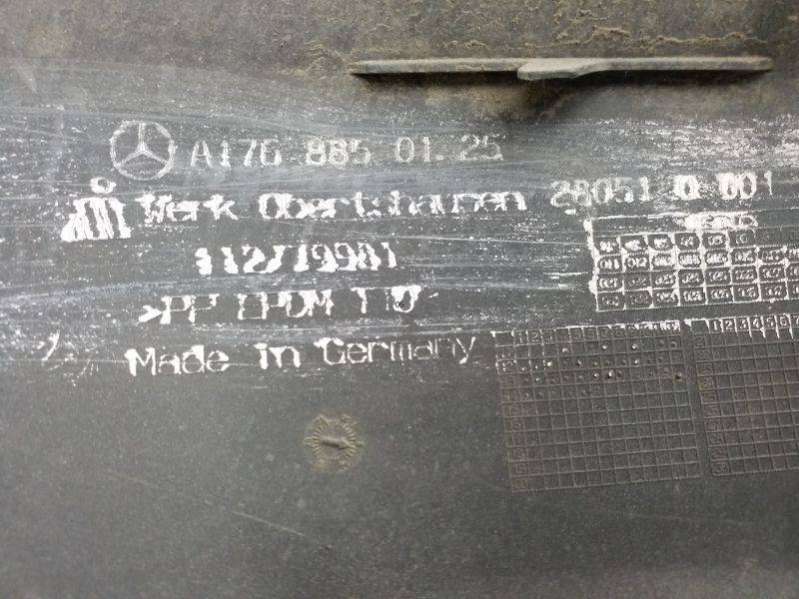 A176 885 01.25
Werk Obertshausen 28051 0 001
112/19981
>PP EPDM T10
Made in Germany